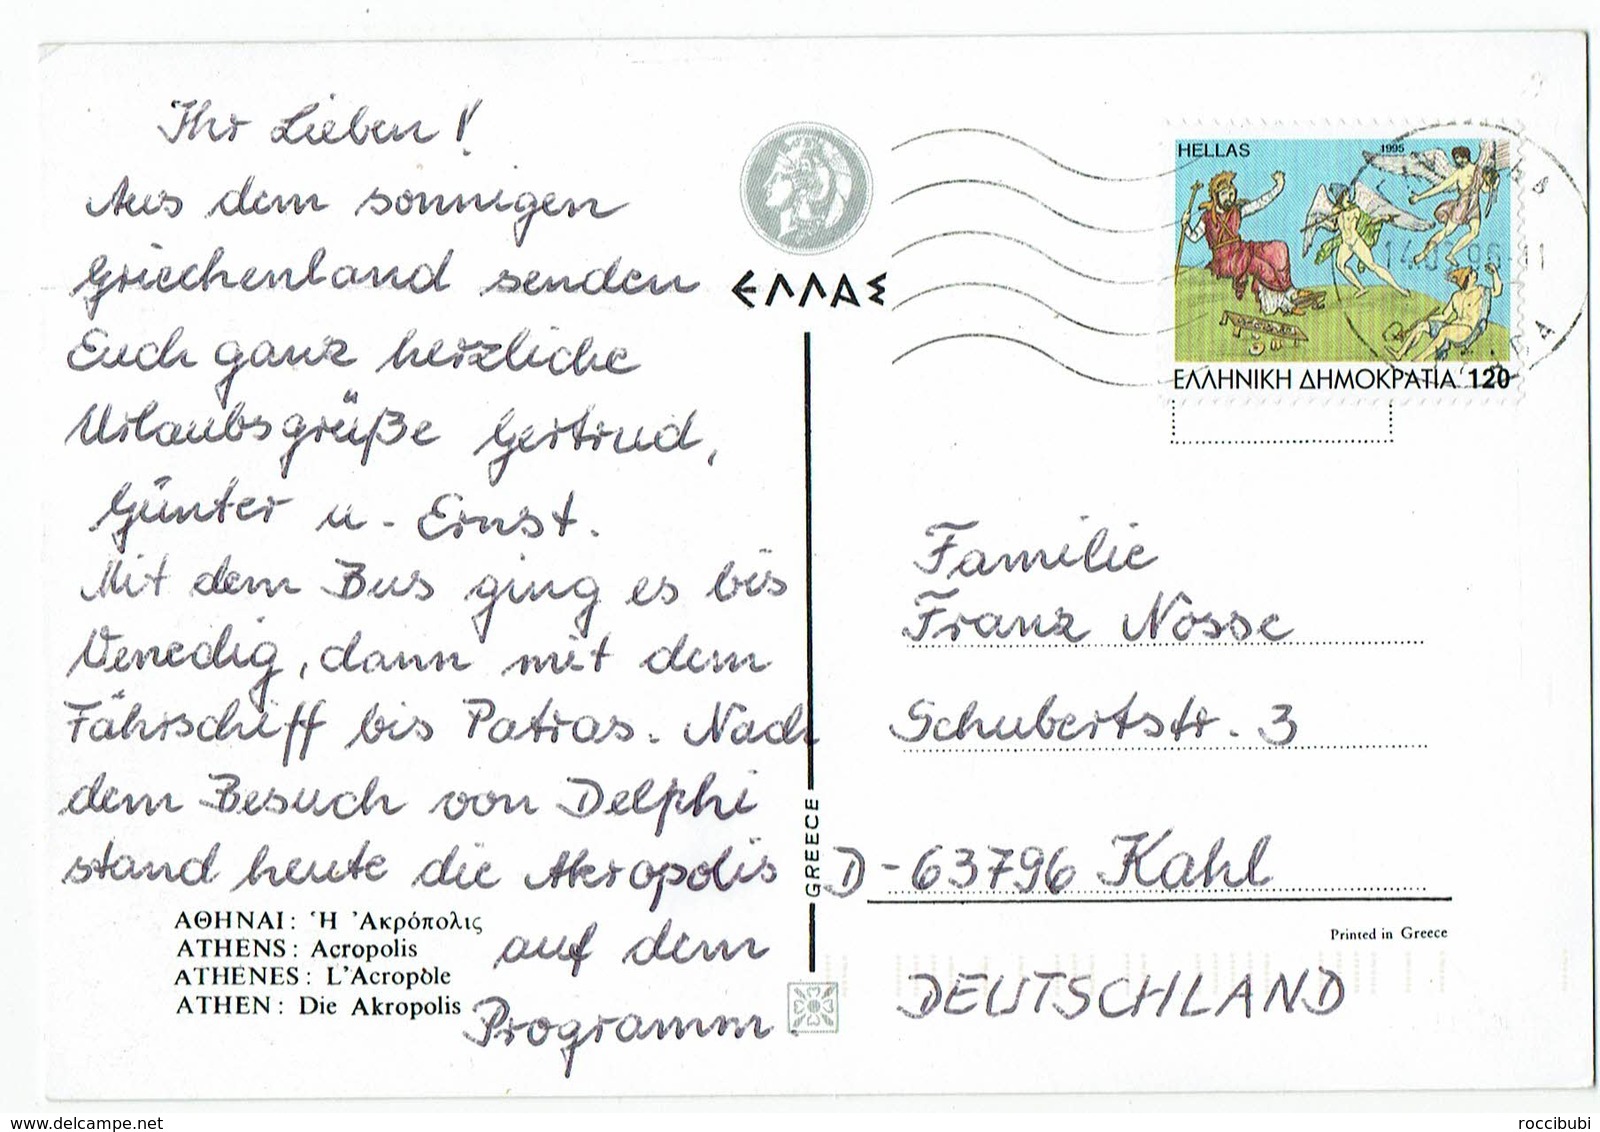 Ihr Lieben!
Aus dem sonnigen
Griechenland senden
Euch ganz herzliche
Urlaubsgrüße Gertrud,
Günter u. Ernst.
Mit dem Bus ging es bis
Venedig, dann mit dem
Fährschiff bis Patras. Nach
dem Besuch von Delphi
stand heute die Akropolis
auf dem
Programm.
ΑΘΗΝΑΙ: Ἡ Ἀκρόπολις
ATHENS: Acropolis
ATHÈNES: L'Acropole
ATHEN: Die Akropolis
ΕΛΛΑΣ
GREECE
HELLAS 1995
ΕΛΛΗΝΙΚΗ ΔΗΜΟΚΡΑΤΙΑ 120
Familie
Franz Nosse
Schubertstr. 3
D-63796 Kahl
Printed in Greece
DEUTSCHLAND
delcampe.net
roccibubi